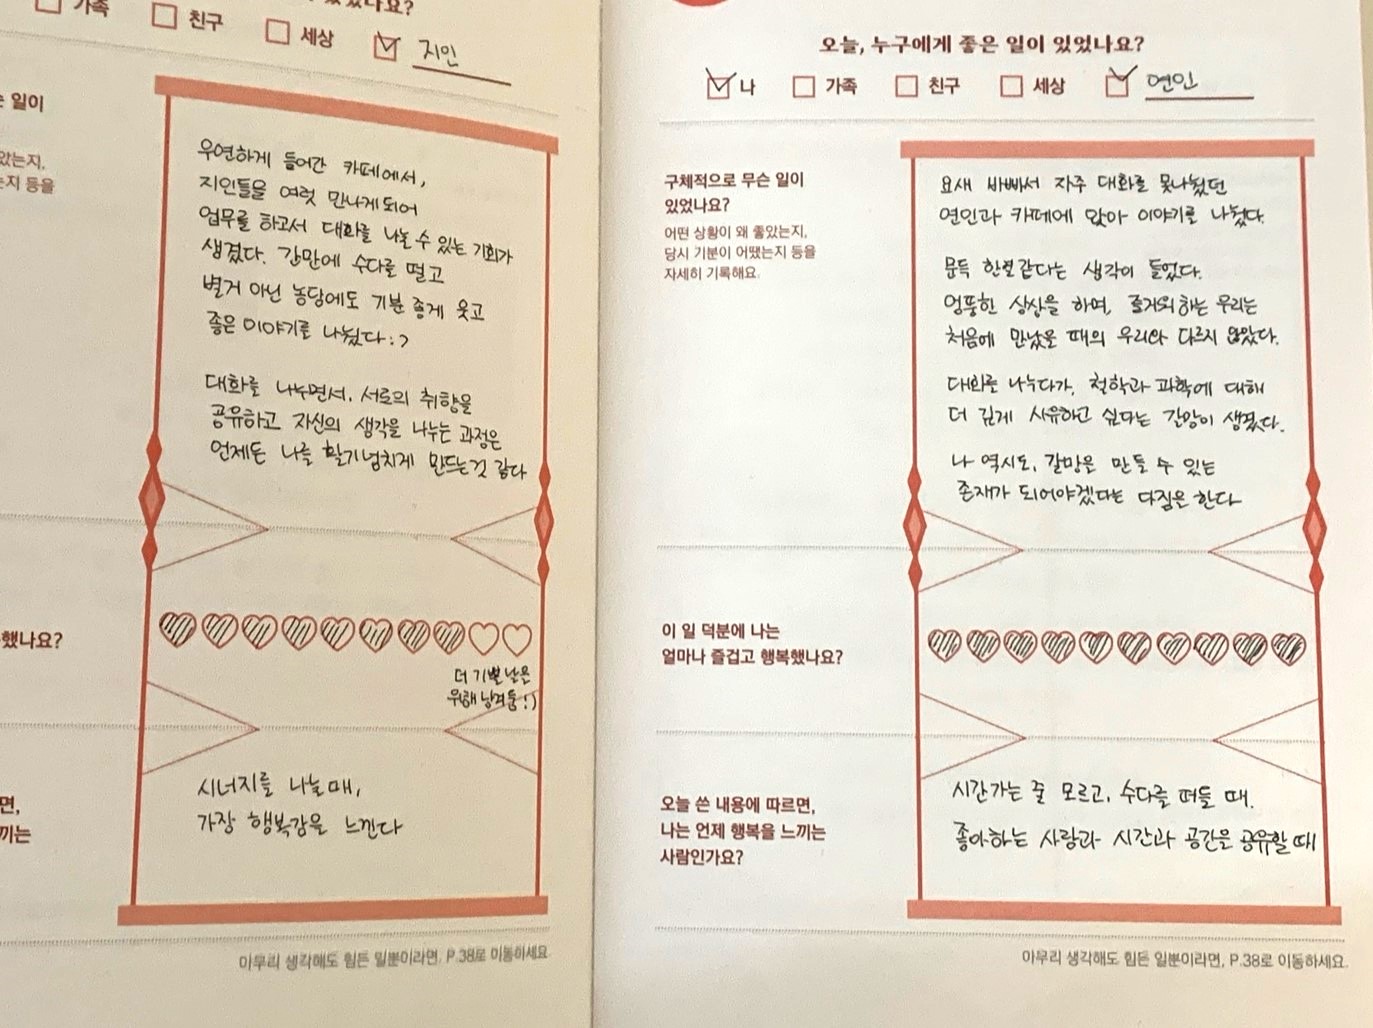 있었나요?
가족 친구 세상 지인
일이
았는지,
지 등을
우연하게 들어간 카페에서,
지인들을 여럿 만나게되어
업무를 하고서 대화를 나눌 수 있는 기회가
생겼다. 간만에 수다를 떨고
별거 아닌 농담에도 기분 좋게 웃고
좋은 이야기를 나눴다:)
대화를 나누면서, 서로의 취향을
공유하고 자신의 생각을 나누는 과정은
언제든 나를 활기넘치게 만드는것 같다
했나요?
더 기쁠 날을
위해 남겨둠:)
면,
끼는
시너지를 나눌때,
가장 행복감을 느낀다
아무리 생각해도 힘든 일뿐이라면, P.38로 이동하세요.
오늘, 누구에게 좋은 일이 있었나요?
나 가족 친구 세상 연인
구체적으로 무슨 일이
있었나요?
어떤 상황이 왜 좋았는지,
당시 기분이 어땠는지 등을
자세히 기록해요.
요새 바빠서 자주 대화를 못나눴던
연인과 카페에 앉아 이야기를 나눴다.
문득 한결같다는 생각이 들었다.
엉뚱한 상상을 하며, 즐거워하는 우리는
처음에 만났을 때의 우리와 다르지 않았다.
대화를 나누다가, 철학과 과학에 대해
더 깊게 사유하고 싶다는 갈망이 생겼다.
나 역시도, 갈망을 만들 수 있는
존재가 되어야겠다는 다짐을 한다
이 일 덕분에 나는
얼마나 즐겁고 행복했나요?
오늘 쓴 내용에 따르면,
나는 언제 행복을 느끼는
사람인가요?
시간가는 줄 모르고, 수다를 떠들 때.
좋아하는 사람과 시간과 공간을 공유할 때
아무리 생각해도 힘든 일뿐이라면, P.38로 이동하세요.